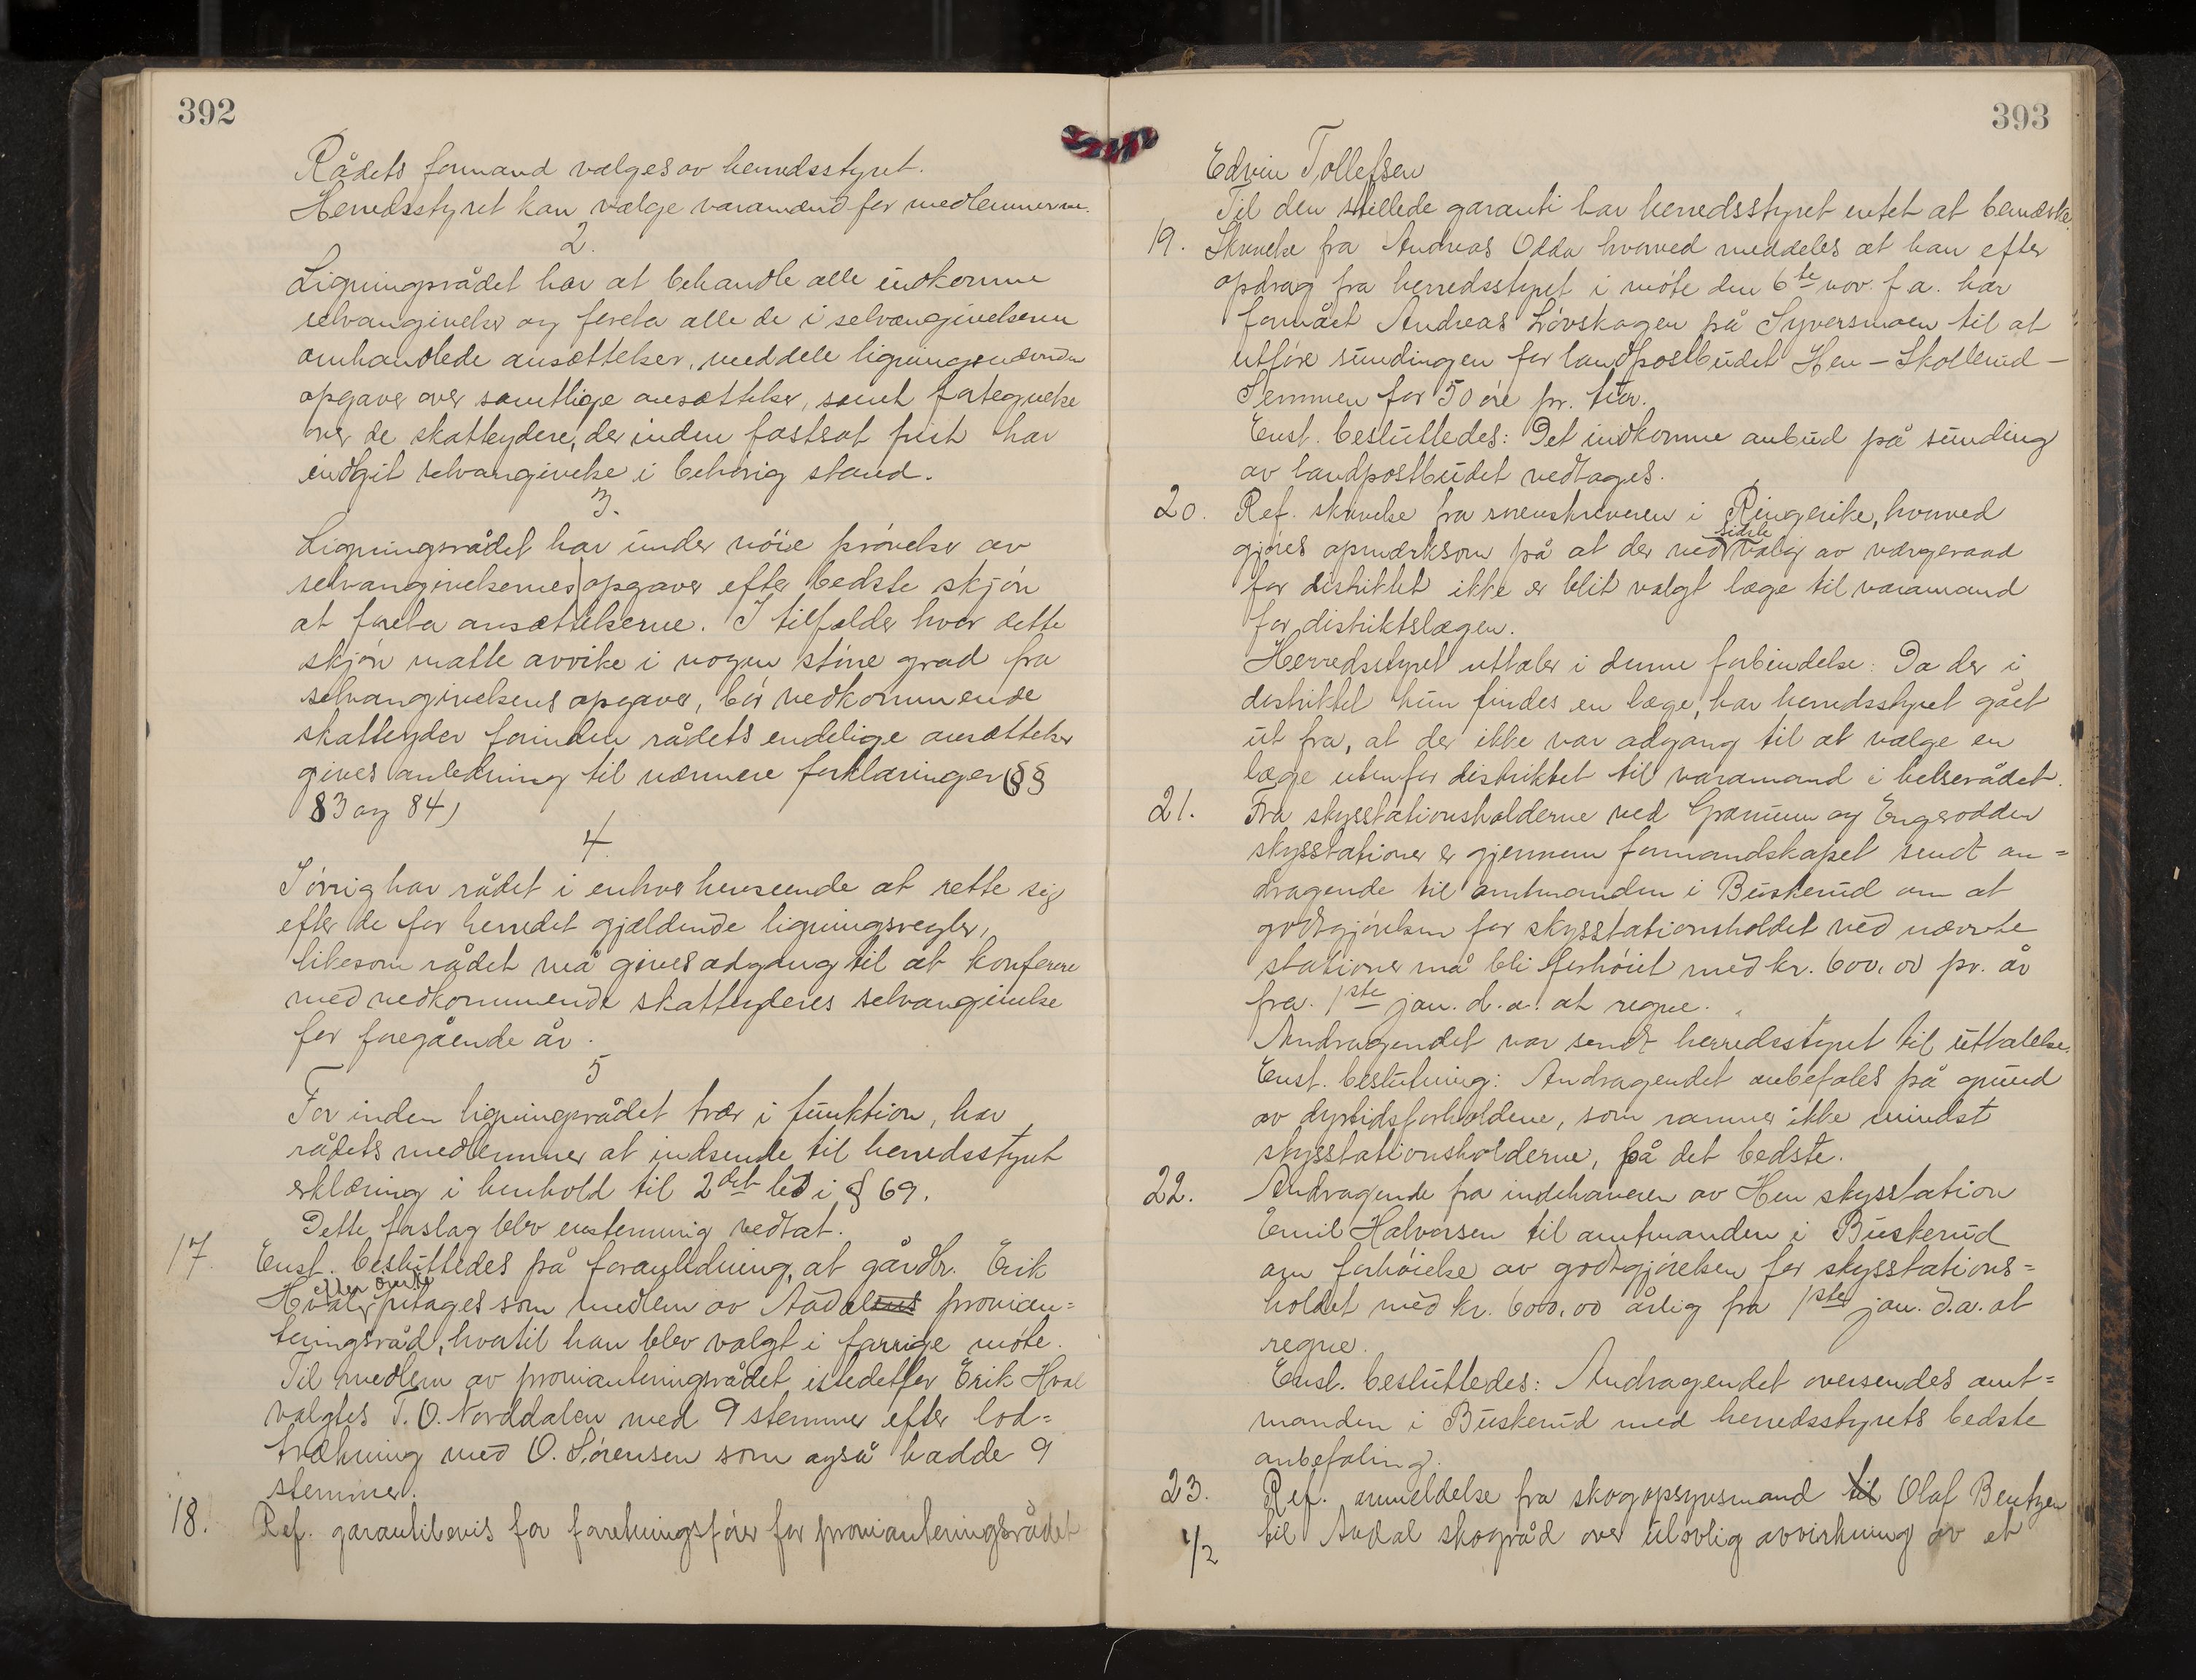 392
Rådets formand vælges av herredsstyret.
Herredsstyret kan vælge varamænd for medlemmerne.
2.
Ligningsrådet har at behandle alle indkomne
selvangivelser og foreta alle de i selvangivelserne
omhandlede ansættelser, meddele ligningsnævnden
opgaver over samtlige ansættelser, samt fortegnelse
over de skatteydere, der inden fastsat frist har
indgit selvangivelse i behörig stand.
3.
Ligningsrådet har under nöie prövelse av
selvangivelsernes opgaver efter bedste skjön
at foreta ansættelserne. I tilfælder hvor dette
skjön måtte avvike i nogen större grad fra
selvangivelsens opgaver, bör vedkommende
skatteyder forinden rådets endelige ansættelser
gives anledning til nærmere forklaringer (§§
83 og 84)
4.
I övrig har rådet i enhver henseende at rette sig
efter de for herredet gjældende ligningsregler,
likesom rådet må gives adgang til at konferere
med vedkommende skatteyderes selvangivelse
for foregående år.
5
For inden ligningsrådet trær i funktion, har
rådets medlemmer at indsende til herredsstyret
erklæring i henhold til 2det led i § 69.
Dette forslag blev enstemmig vedtat.
17. Enst. besluttedes på foranledning, at gårdbr. Erik
Hval efter önske fritages som medlem av Aadalens provian=
teringsråd, hvortil han blev valgt i forrige möte.
Til medlem av provianteringsrådet istedetfor Erik Hval
valgtes T. O. Norddalen med 9 stemmer efter lod=
trækning med O. Sörensen som også hadde 9
stemmer.
18. Ref. garantibevis for forretningsförer for provianteringsrådet
393
Edvin Tollefsen
Til den stillede garanti har herredsstyret intet at bemærke.
19. Skrivelse fra Andreas Odda hvorved meddeles at han efter
opdrag fra herredsstyret i möte den 6te nov. f. a. har
formået Andreas Lövskogen på Syversmoen til at
utföre sundingen for landpostbudet Hen – Skollerud –
Semmen for 50 öre pr. tur.
Enst. besluttedes: Det indkomne anbud på sunding
av landpostbudet vedtages.
20. Ref. skrivelse fra sorenskriveren i Ringerike, hvorved
gjöres opmerksom på at der ved sidste valg av værgeraad
for distriktet ikke er blit valgt læge til varamand
for distriktslægen.
Herredsstyret uttaler i denne forbindelse: Da der i
distriktet kun findes en læge, har herredsstyret gået
ut fra, at der ikke var adgang til at vælge en
læge utenfor distriktet til varamand i helserådet.
21. Fra skysstationsholderne ved Granum og Engerodden
skysstationer er gjennem formandskapet sendt an=
dragende til amtmanden i Buskerud om at
godtgjörelsen for skysstationsholdet ved nævnte
stationer må bli forhöiet med kr. 600,00 pr. år
fra 1ste jan. d. a. at regne.
Andragendet var sendt herredsstyret til uttalelse.
Enst. beslutning: Andragendet anbefales på grund
av dyrtidsforholdene, som rammer ikke mindst
skysstationsholderne, på det bedste.
22. Andragende fra indehaveren av Hen skysstation
Emil Halvorsen til amtmanden i Buskerud
om forhöielse av godtgjörelsen for skysstations=
holdet med kr. 600,00 årlig fra 1ste jan. d. a. at
regne.
Enst. besluttedes: Andragendet oversendes amt=
manden i Buskerud med herredsstyrets bedste
anbefaling.
23. Ref. anmeldelse fra skogopsynsmand til Olaf Bentzen
1/2 til Aadal skogråd over ulovlig avvirkning av et